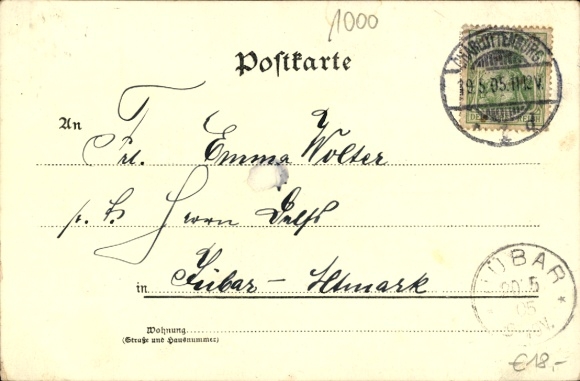 1000
Postkarte
CHARLOTTENBURG
19.5.05.11-12V.
* d
An
Frl. Emma Wolter
Herrn Delfs
in Jübar - Altmark
JÜBAR
20 5
05
Wohnung
(Straße und Hausnummer)
€18,-